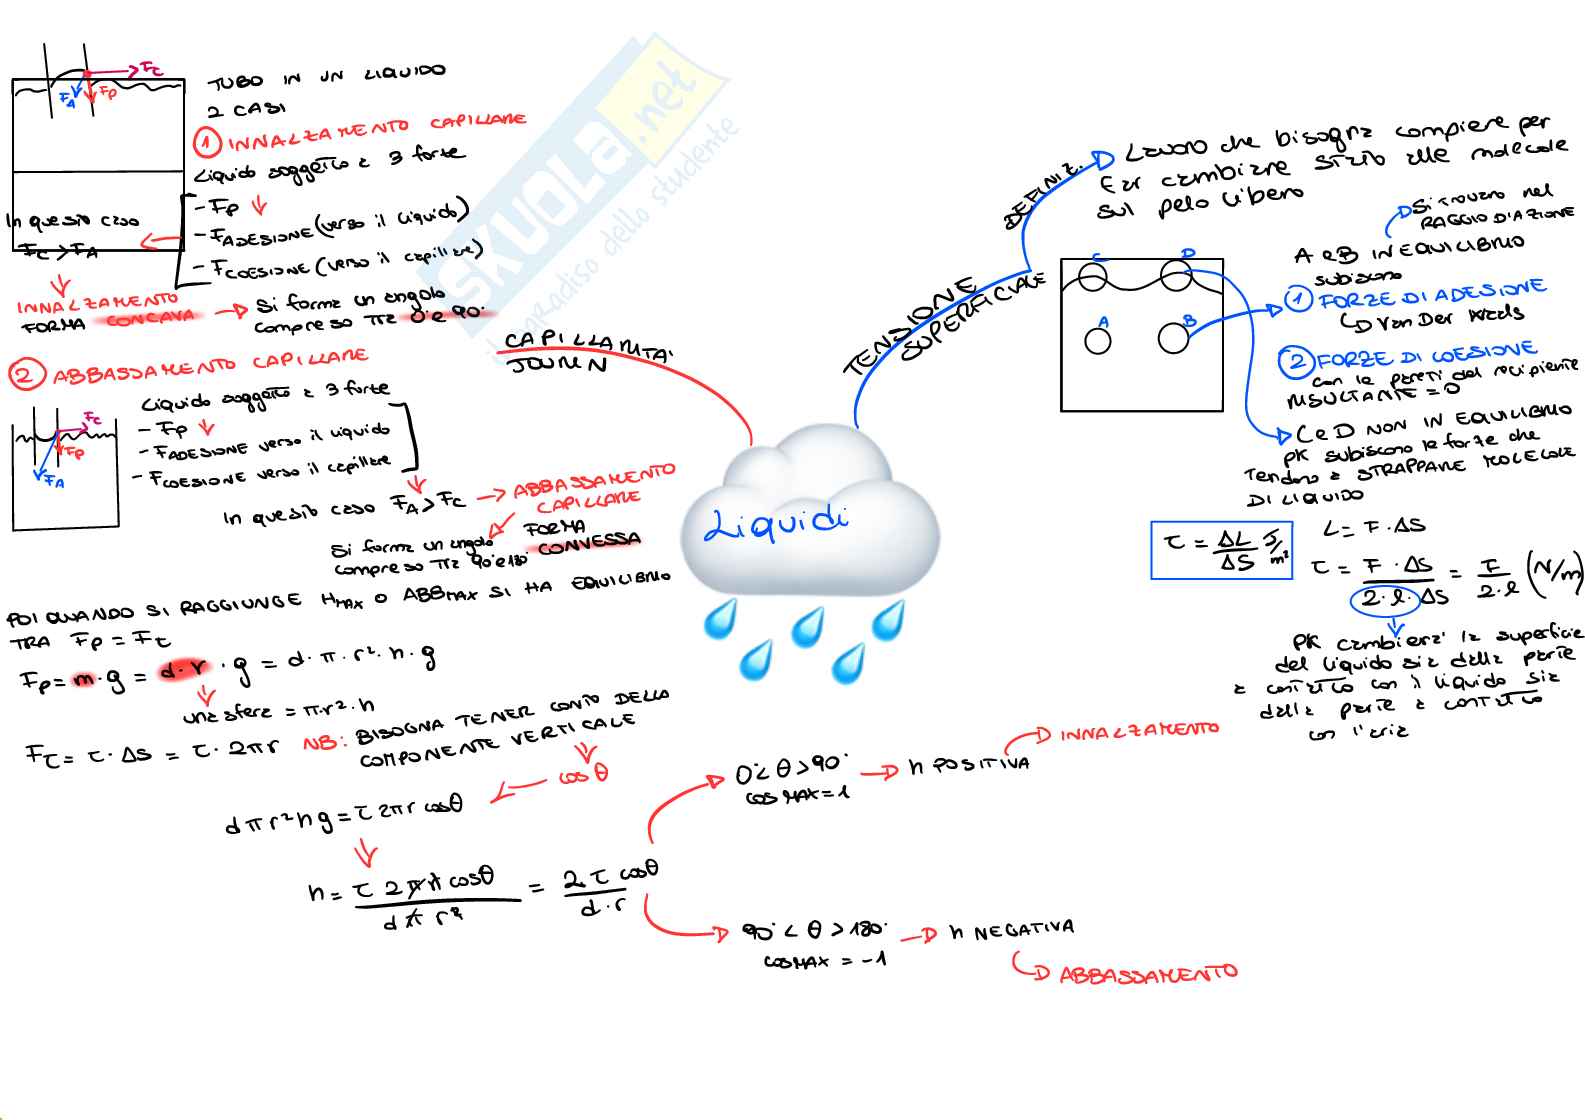 TUBO IN UN LIQUIDO
2 CASI
1 INNALZAMENTO CAPILLARE
Liquido soggetto a 3 forte
- Fp ↓
- FADESIONE (verso il liquido)
- FCOESIONE (verso il capillare)
Fτ
FA
Fp
In questo caso
Fc > FA
INNALZAMENTO
FORMA CONCAVA → Si forma un angolo
compreso tra 0° e 90°
2 ABBASSAMENTO CAPILLARE
Liquido soggetto a 3 forte
- Fp ↓
- FADESIONE verso il liquido
- FCOESIONE verso il capillare
Fτ
Fp
FA
In questo caso FA > Fc → ABBASSAMENTO
CAPILLARE
FORMA
CONVESSA
Si forma un angolo
compreso tra 90° e 180°
POI QUANDO SI RAGGIUNGE HMAX O ABBMAX SI HA EQUILIBRIO
TRA Fp = Fτ
Fp = m · g = d · V · g = d · π · r² · h · g
una sfera = π · r² · h
Fτ = τ · ΔS = τ · 2πr
NB: BISOGNA TENER CONTO DELLA
COMPONENTE VERTICALE
cos θ
d π r² h g = τ 2πr cosθ
h = τ 2πr cosθ / d π r² = 2 τ cosθ / d · r
0° < θ > 90° → h POSITIVA
COS MAX = 1
INNALZAMENTO
90° < θ > 180° → h NEGATIVA
COS MAX = -1
ABBASSAMENTO
CAPILLARITA'
JOURIN
Liquidi
TENSIONE
SUPERFICIALE
DEFINIZ.
Lavoro che bisogna compiere per
far cambiare stato alle molecole
sul pelo libero
C
D
A
B
Si trovano nel
RAGGIO D'AZIONE
A e B IN EQUILIBRIO
subiscono
1 FORZE DI ADESIONE
Van Der Waals
2 FORZE DI COESIONE
con le pareti del recipiente
RISULTANTE = 0
C e D NON IN EQUILIBRIO
PK subiscono le forze che
Tendono a STRAPPARE MOLECOLE
DI LIQUIDO
τ = ΔL / ΔS J/m²
L = F · ΔS
τ = F · ΔS / 2 · l · ΔS = F / 2 · l (N/m)
PK cambiera' la superficie
del liquido sia dalla parte
a contatto con il liquido sia
dalla parte a contatto
con l'aria
SKUOLA.net
il paradiso dello studente